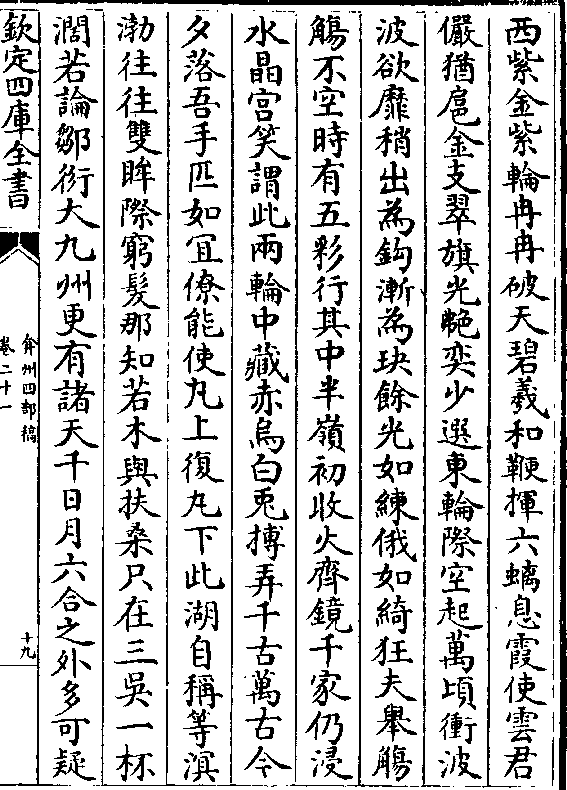 西紫金紫輪冉冉破天碧羲和鞭揮六螭息霞使雲君
儼猶扈金支翠旗光艷奕少選東輪際空起萬頃衝波
波欲靡稍出為鈎漸為玦餘光如練俄如綺狂夫舉觴
觴不空時有五彩行其中半嶺初收火齊鏡千家仍浸
水晶宫笑謂此兩輪中藏赤烏白兎摶弄千古萬古今
夕落吾手匹如宜僚能使丸上復丸下此湖自稱等溟
渤往往雙眸際窮髮那知若木與扶桑只在三吳一杯
濶若論鄒衍大九州更有諸天千日月六合之外多可疑
欽定四庫全書
弇州四部稿
卷二十一
十九